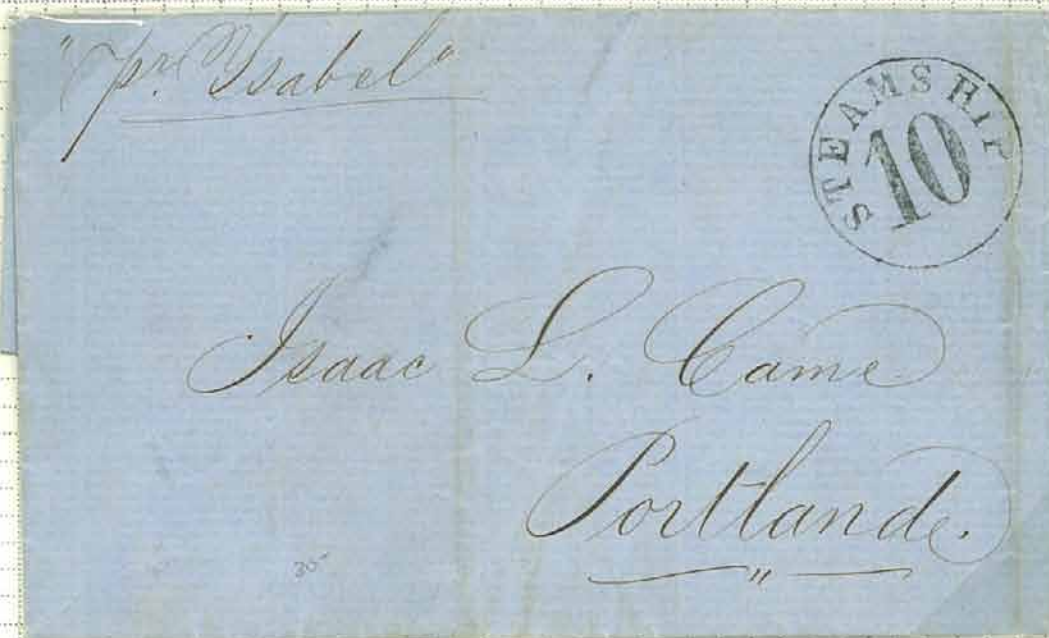 "pr. Ysabel"
STEAMSHIP
10
Isaac L. Came
Portland.
"
30